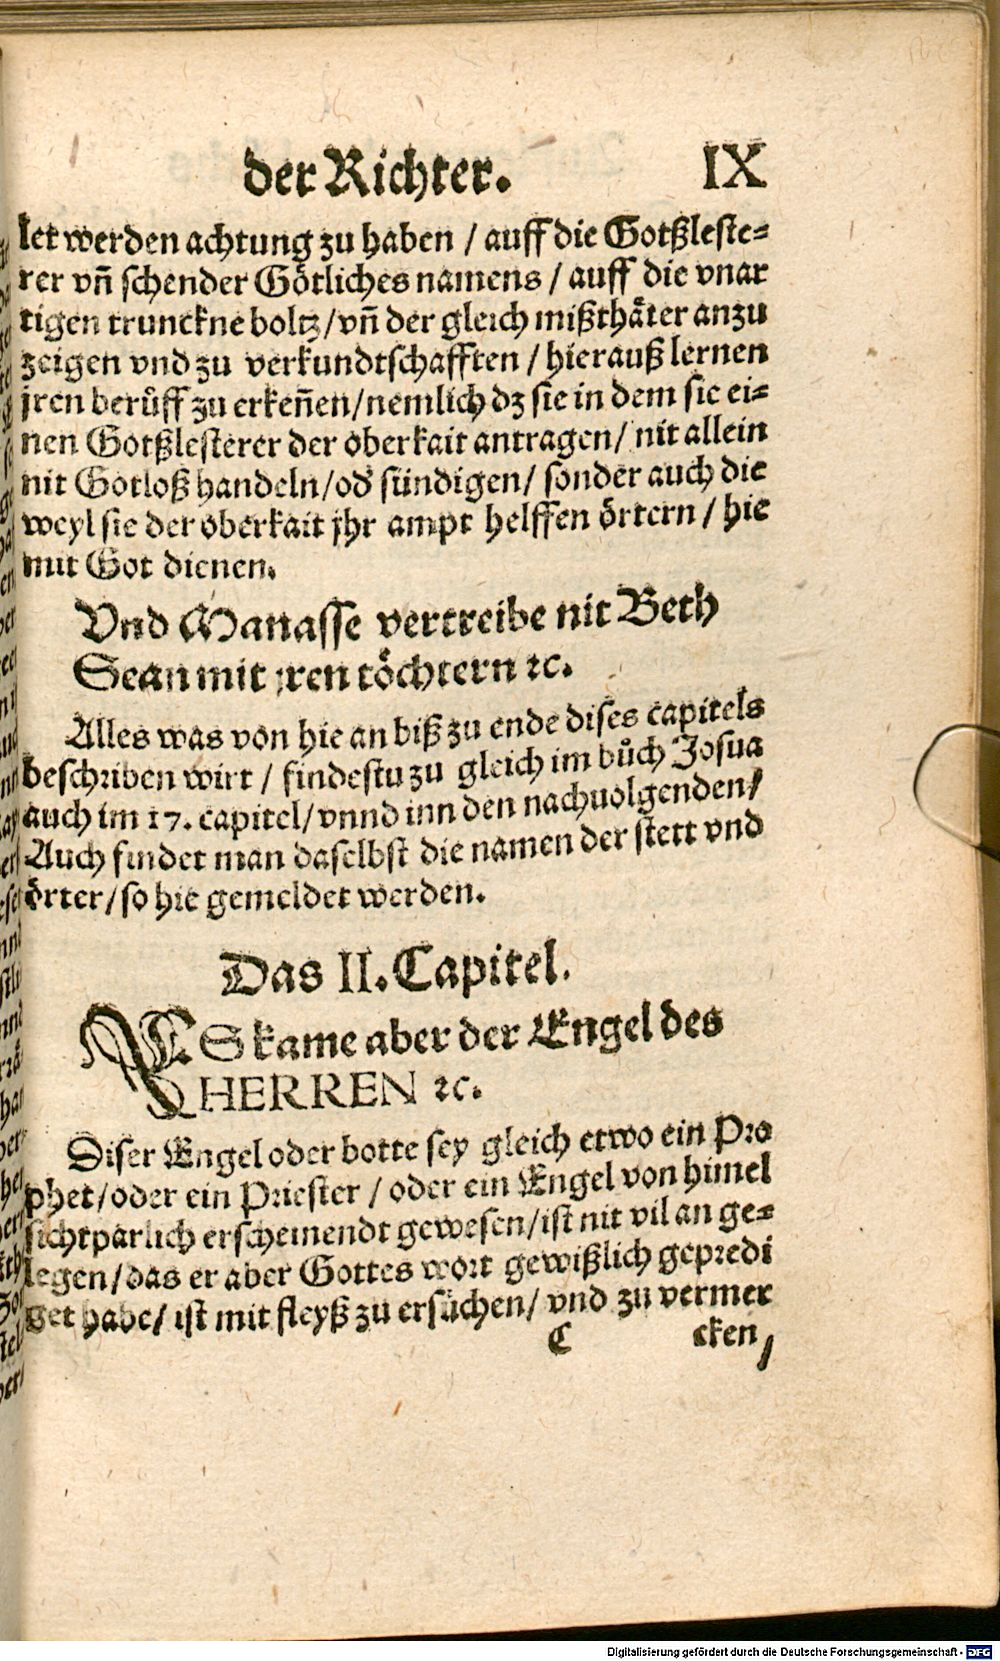 der Richter. IX
let werden achtung zu haben / auff die Gotßleste=
rer vñ schender Götliches namens / auff die vnar
tigen trunckne boltz/vñ der gleich mißthäter anzu
zeigen vnd zu verkundtschafften / hierauß lernen
jren berůff zu erkeñen/nemlich dz sie in dem sie ei=
nen Gotßlesterer der oberkait antragen/ nit allein
nit Gotloß handeln/od' sündigen/ sonder auch die
weyl sie der oberkait jhr ampt helffen örtern / hie
mit Got dienen.
Vnd Manasse vertreibe nit Beth
Sean mit jren töchtern ꝛc.
Alles was von hie an biß zu ende dises capitels
beschriben wirt / findestu zu gleich im bůch Josua
auch im 17. capitel/ vnnd inn den nachuolgenden/
Auch findet man daselbst die namen der stett vnd
örter/so hie gemeldet werden.
Das II. Capitel.
ES kame aber der Engel des
HERREN ꝛc.
Diser Engel oder botte sey gleich etwo ein Pro
phet/oder ein Priester / oder ein Engel von himel
sichtparlich erscheinendt gewesen/ist nit vil an ge=
legen/das er aber Gottes wort gewißlich gepredi
get habe/ ist mit fleyß zu ersůchen/ vnd zu vermer
C cken/
Digitalisierung gefördert durch die Deutsche Forschungsgemeinschaft - DFG